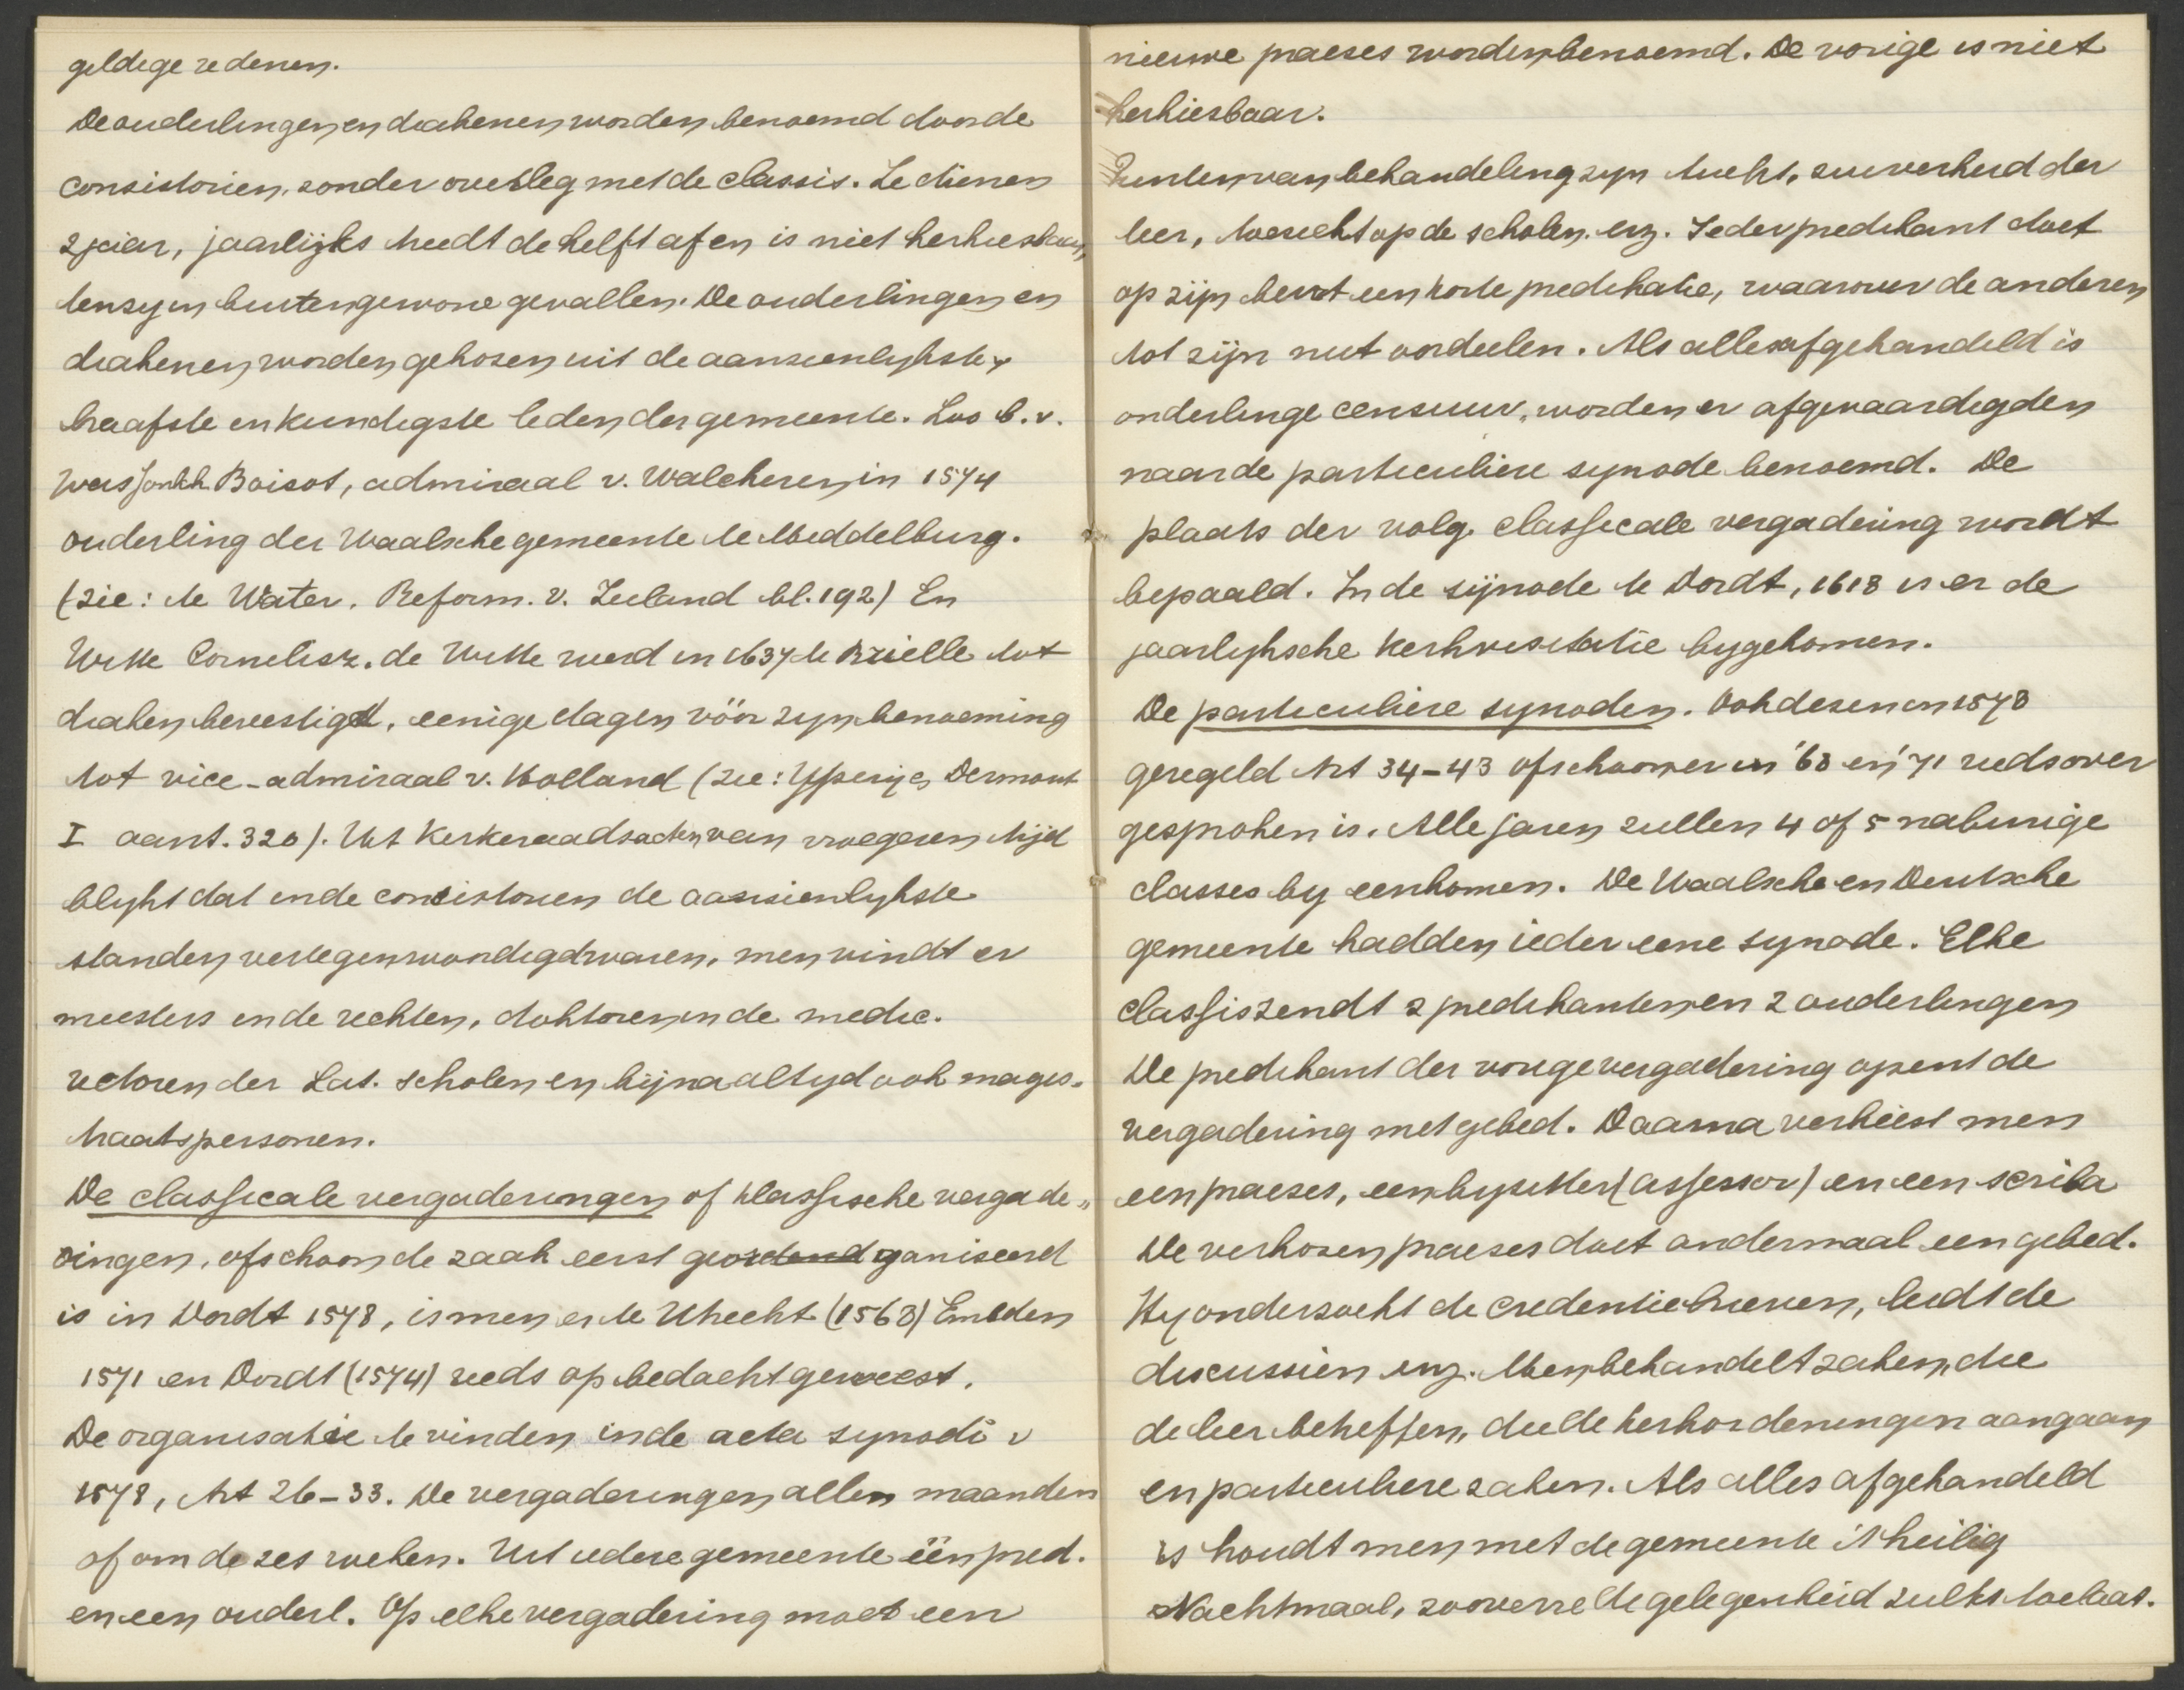 geldige redenen.
De ouderlingen en diakenen worden benoemd door de
consistoriën, zonder overleg met de classis. Ze dienen
2 jaar, jaarlijks treedt de helft af en is niet herkiesbaar,
tenzy in buitengewone gevallen. De ouderlingen en
diakenen worden gekozen uit de aanzienlykste,
braafste en kundigste leden der gemeente. Zoo b.v.
was Jonkh. Boisot, admiraal v. Walcheren in 1574
ouderling der Waalsche gemeente te Middelburg.
(zie: te Water. Reform. v. Zeeland bl. 192) En
Witte Cornelisz. de Witte werd in 1637 te Brielle tot
diaken bevestigd, eenige dagen vóór zyn benoeming
tot vice-admiraal v. Holland (zie: Ypeij en Dermout
I aant. 320). Uit kerkeraadsacten van vroegeren tijd
blykt dat in de consistoriën de aanzienlykste
standen vertegenwoordigd waren, men vindt er
meesters in de rechten, doktoren in de medic.
rectoren der Lat. scholen en bijna altyd ook magis-
traatspersonen.
De classicale vergaderingen of klassische vergade„
ringen, ofschoon de zaak eerst geordend ganiseerd
is in Dordt 1578, is men er te Utrecht (1568) Embden
1571 en Dordt (1574) reeds op bedacht geweest.
De organisatie te vinden in de acta synodi v
1578, Art 26-33. De vergaderingen allen maanden
of om de zes weken. Uit iedere gemeente één pred.
en een ouderl. Op elke vergadering moet een
nieuwe praeses worden benoemd. De vorige is niet
herkiesbaar.
Punten van behandeling zyn tucht, zuiverheid der
leer, toezicht op de scholen. enz. Ieder predikant doet
op zijn beurt een korte predikatie, waarover de anderen
tot zijn nut oordeelen. Als alles afgehandeld is
onderlinge censuur, worden er afgevaardigden
naar de particuliere synode benoemd. De
plaats der volg. classicale vergadering wordt
bepaald. In de sijnode te Dordt, 1618 is er de
jaarlyksche kerkvisitatie bygekomen.
De particuliere synoden. Ook dezen in 1578
geregeld Art 34-43 ofschoon er in '68 en '71 reeds over
gesproken is. Alle jaren zullen 4 of 5 naburige
classes by eenkomen. De Waalsche en Deutsche
gemeente hadden ieder eene synode. Elke
classis zendt 2 predikanten en 2 ouderlingen
De predikant der vorige vergadering opent de
vergadering met gebed. Daarna verkiest men
een praeses, een byzitter (assessor) en een scriba
De verkozen praeses doet andermaal een gebed.
Hy onderzoekt de credentiebrieven, leidt de
discussiën enz. Men behandelt zaken, die
de leer betreffen, die de kerkordeningen aangaan
en particuliere zaken. Als alles afgehandeld
is houdt men met de gemeente 't heilig
Nachtmaal, zooverre de gelegenheid zulks toelaat.